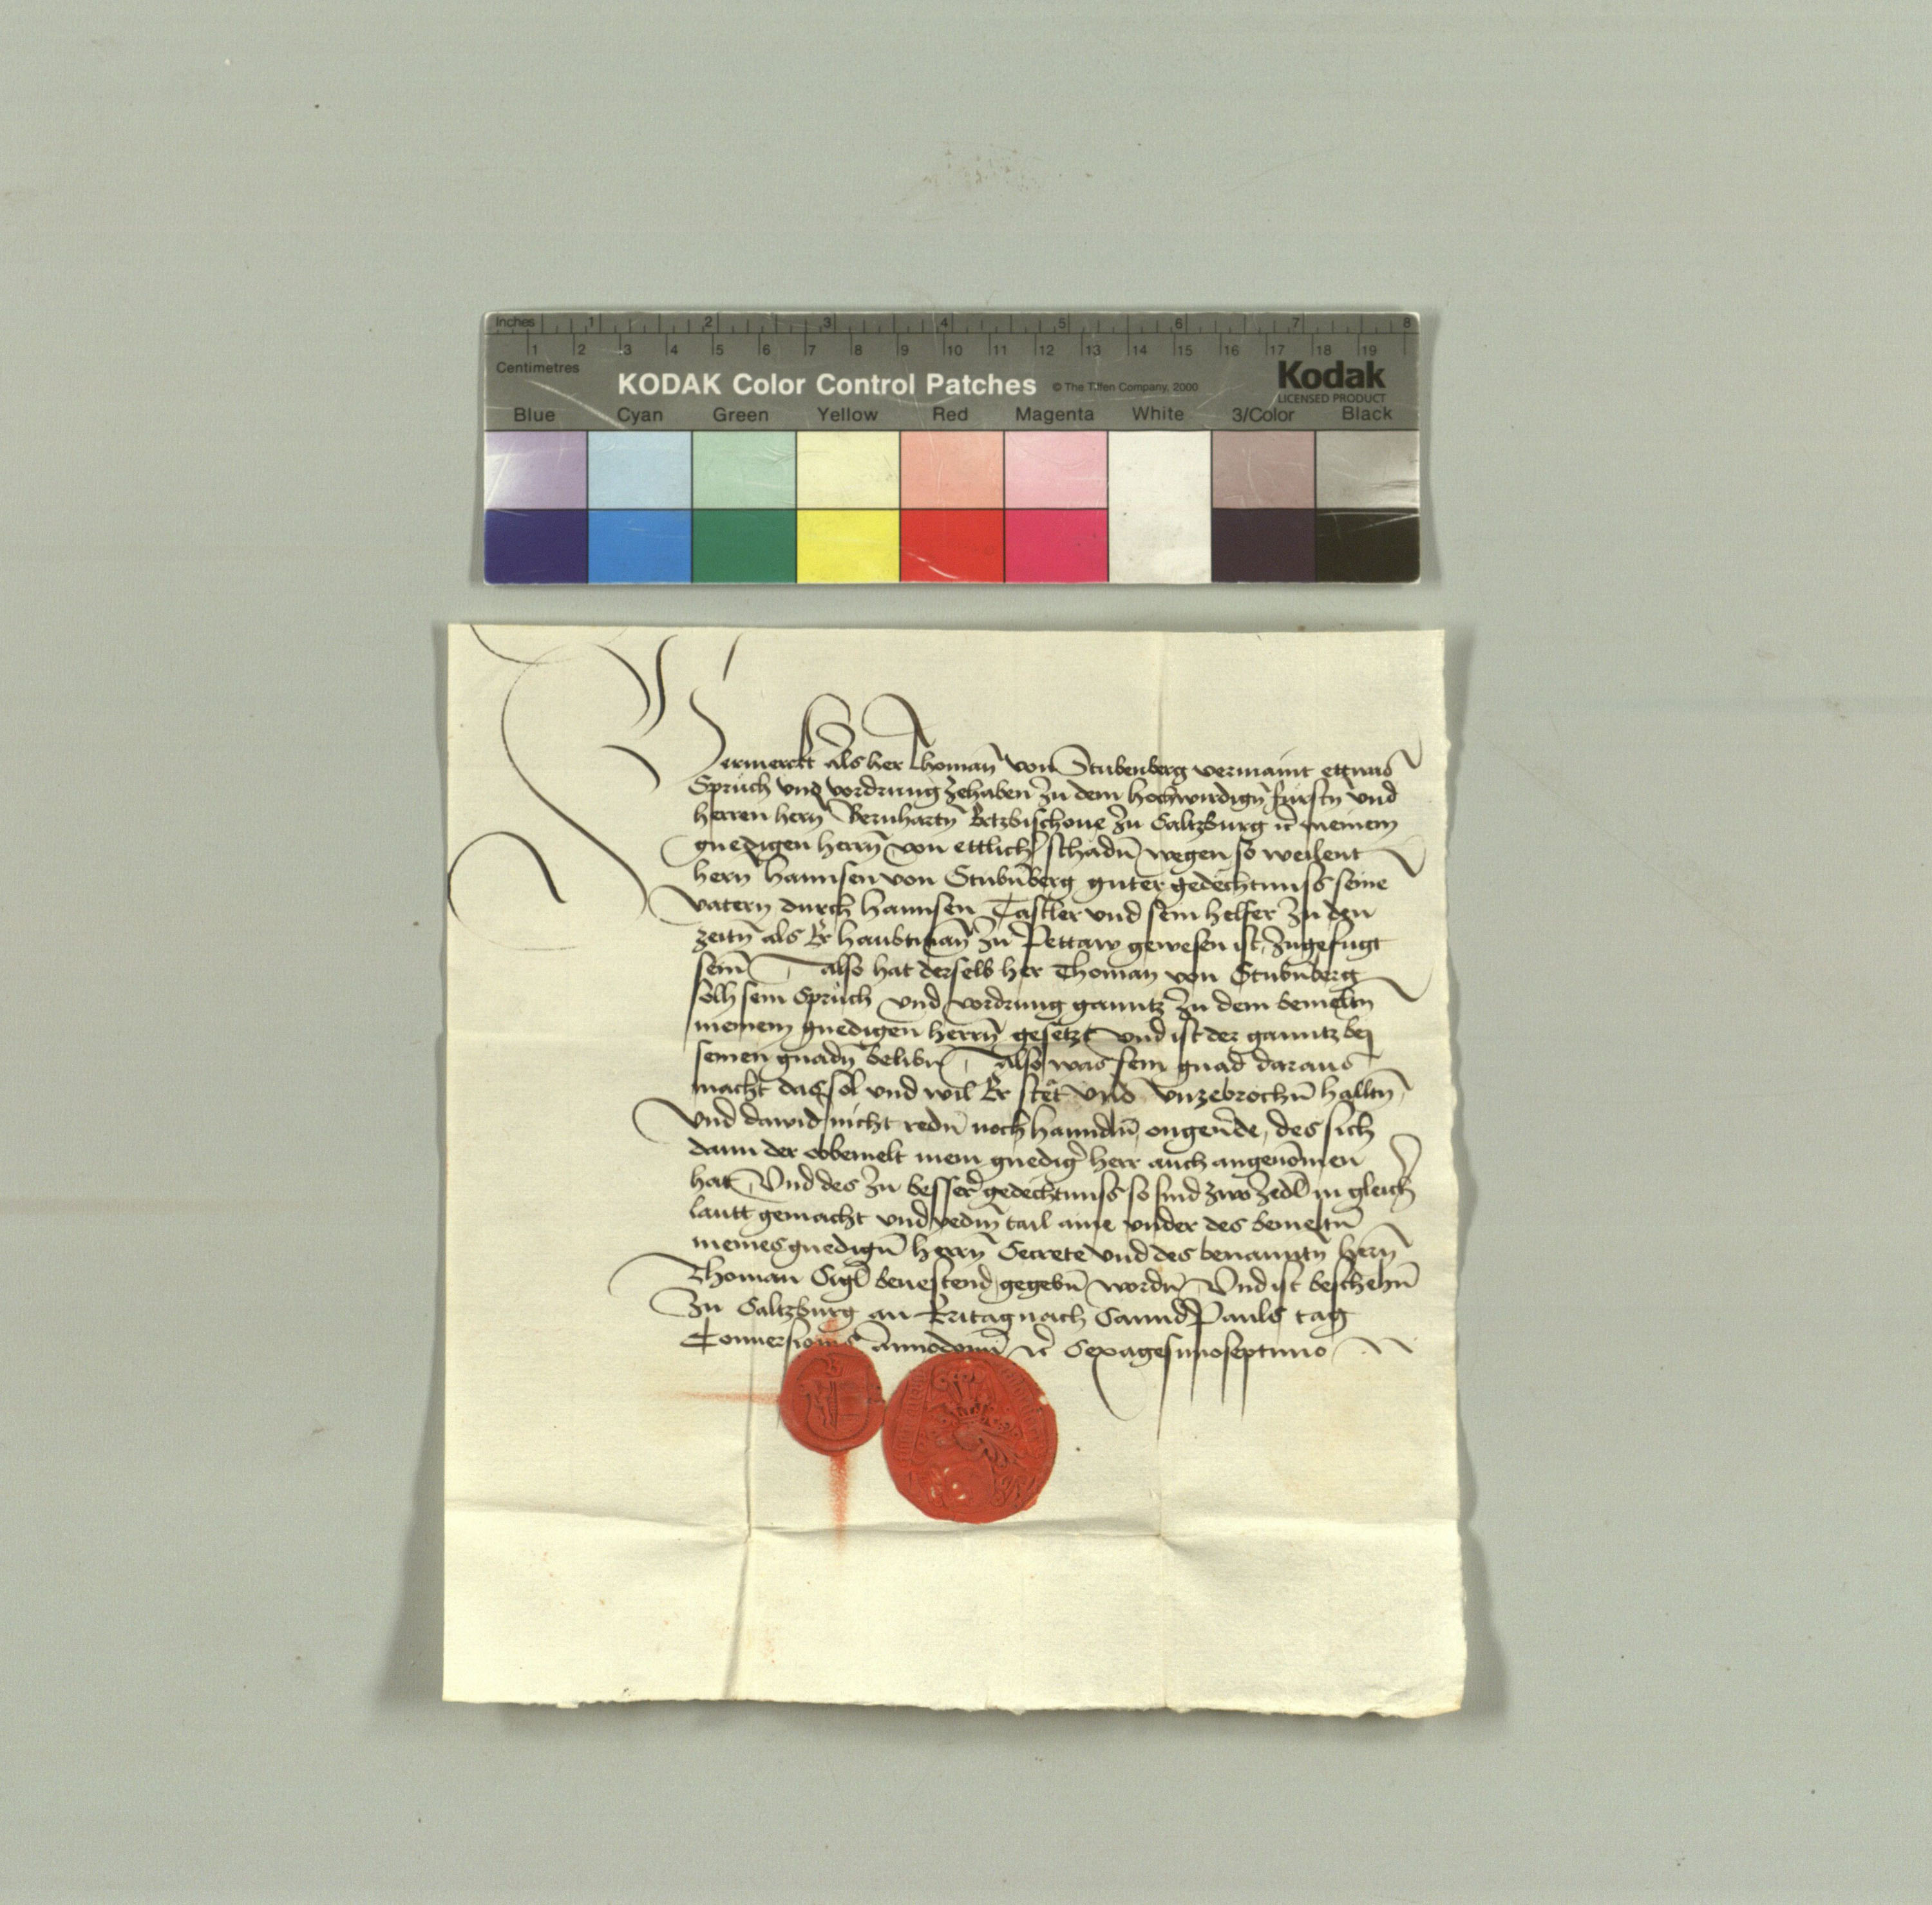 Inches 1 2 3 4 5 6 7 8
1 2 3 4 5 6 7 8 9 10 11 12 13 14 15 16 17 18 19
Centimetres
KODAK Color Control Patches © The Tiffen Company, 2000 Kodak
LICENSED PRODUCT
Blue Cyan Green Yellow Red Magenta White 3/Color Black
Vermerckt als her Thoman̄ von Stubenberg vermaint ettwas
Sprüch vnd vordrung zehaben zu dem hochwirdign̄ fürstn̄ vnd
herren hern̄ Bernhartn̄ Ertzbischoue zu Saltzburg ꝛc̄ meinem
gnedigen herrn̄ von ettlich schadn̄ wegen so weilent
hern̄ Hannsen von Stubn̄berg guter gedechtnuss seine
vatern durch Hannsen Tastler vnd sein helfer zu den
zeitn̄ als Er haubtman̄ zu Pettaw gewesen ist, zugefugt
sein̄ also hat derselb her Thoman von Stubn̄berg
solh sein Sprüch vnd vordrung ganntz zu dem bemeltn̄
meinem gnedigen herrn̄ gesetzt vnd ist der ganntz bej
seinen gnadn̄ belibn̄ Also was sein gnad daraus
macht das sol vnd wil Er stet vnd vnzebrochn̄ halltn̄
vnd dawid nicht redn̄ noch hanndln̄ ongeu̇de, des sich
dann der obbemelt mein gnedig̓ herr auch angenōmen
hat, Vnd des zu besser̓ gedechtnuss so sind zwo zedl̄ in gleich
lautt gemacht vnd yedm̄ tail aine vnder des bemeltn̄
meines gnedign̄ herrn̄ Secrete vnd des benanntn̄ hern̄
Thoman Sigl̄ beuestend gegebn̄ wordn̄ Vnd ist beschehn̄
zu Saltzburg an Eritag nach Sannd Pauls tag
Conuersionis Annodomī ꝛc̄ Sexagesimoseptimo